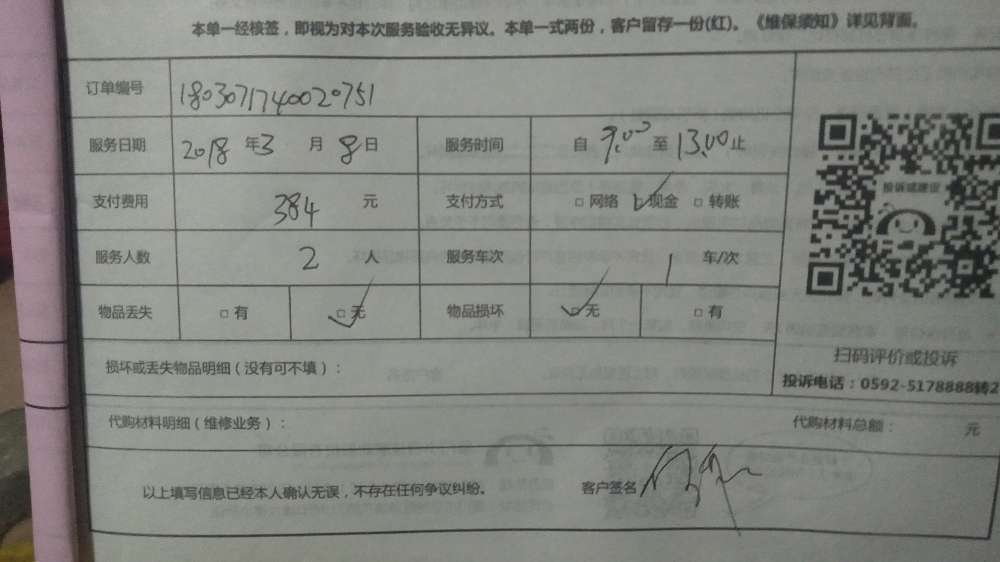 本单一经核签，即视为对本次服务验收无异议。本单一式两份，客户留存一份(红)。《维保须知》详见背面。
订单编号 1803071740020751
服务日期 2018 年 3 月 8 日 服务时间 自 9:00 至 13:00 止
支付费用 384 元 支付方式 □ 网络 ☑ 现金 □ 转账
服务人数 2 人 服务车次 1 车/次
物品丢失 □ 有 ☑ 无 物品损坏 ☑ 无 □ 有
投诉或建议
扫码评价或投诉
投诉电话：0592-5178888转2
损坏或丢失物品明细（没有可不填）：
代购材料明细（维修业务）： 代购材料总额： 元
以上填写信息已经本人确认无误，不存在任何争议纠纷。 客户签名